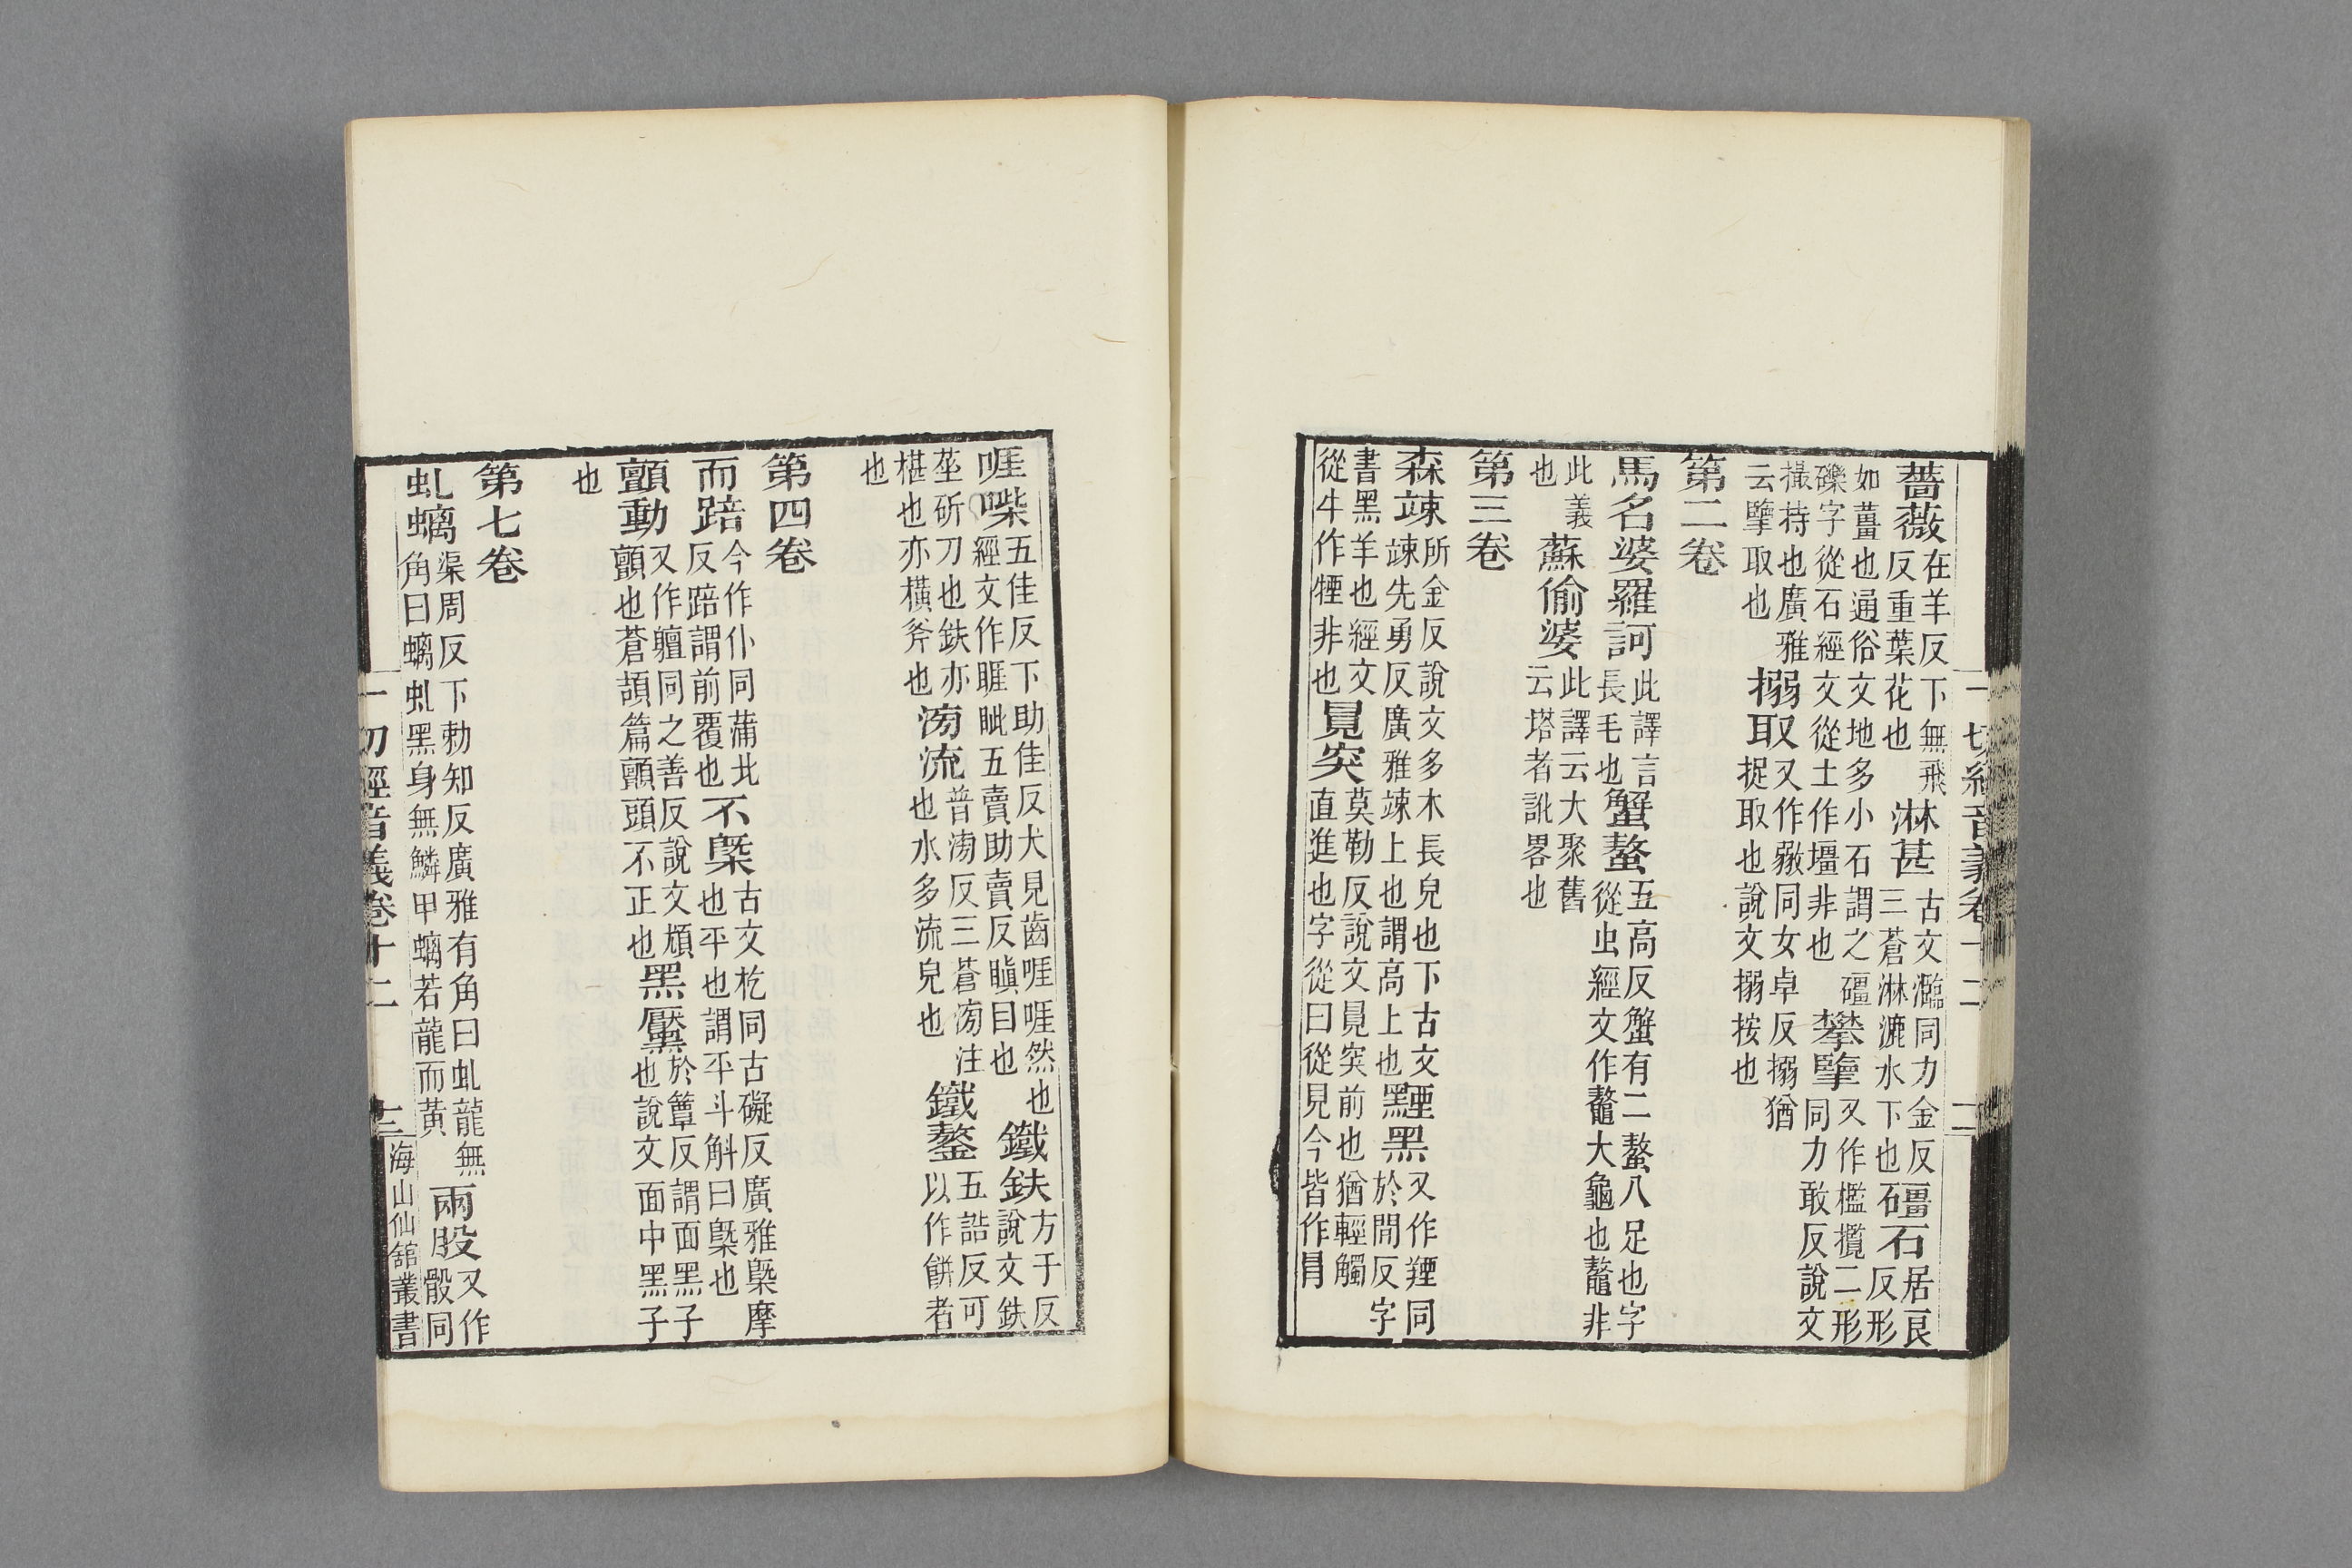 一切經音義卷十二 二
薔薇在羊反下無飛反重葉花也淋甚古文灆同力金反三蒼淋漉水下也礓石居良反形
如薑也通俗文地多小石謂之礓礫字從石經文從土作壃非也攀擥又作檻攬二形同力敢反說文
撮持也廣雅云擥取也搦取又作同女卓反搦猶捉取也說文搦按也
第二卷
馬名婆羅訶此譯言長毛也蟹螯五高反蟹有二螯八足也字從虫經文作鼇大龜也鼇非
此義也蘇偷婆此譯云大聚舊云塔者訛畧也
第三卷
森竦所金反說文多木長皃也下古文竦先勇反廣雅竦上也謂高上也黫黑又作羥同於間反字
書黑羊也經文從牛作㹻非也㒻突莫勒反說文㒻突前也猶輕觸直進也字從曰從見今皆作冐
啀喍五佳反下助佳反犬見齒啀啀然也經文作睚眦五賣助賣反瞋目也鐵鈇方于反說文鈇
莝斫刀也鈇亦椹也亦橫斧也滂流普滂反三蒼滂注也水多流皃也鐵鏊五誥反可以作餅者
也
第四卷
而踣今作仆同蒲北反踣謂前覆也不槩古文杚同古礙反廣雅槩摩也平也謂平斗斛曰槩也
顫動又作同之善反說文頑顫也蒼頡篇顫頭不正也黑黶於簟反謂面黑子也說文面中黑子
也
第七卷
虬螭渠周反下勅知反廣雅有角曰虬龍無角曰螭虬黑身無鱗甲螭若龍而黃兩股又作骰同
一切經音義卷十二 三 海山仙舘叢書